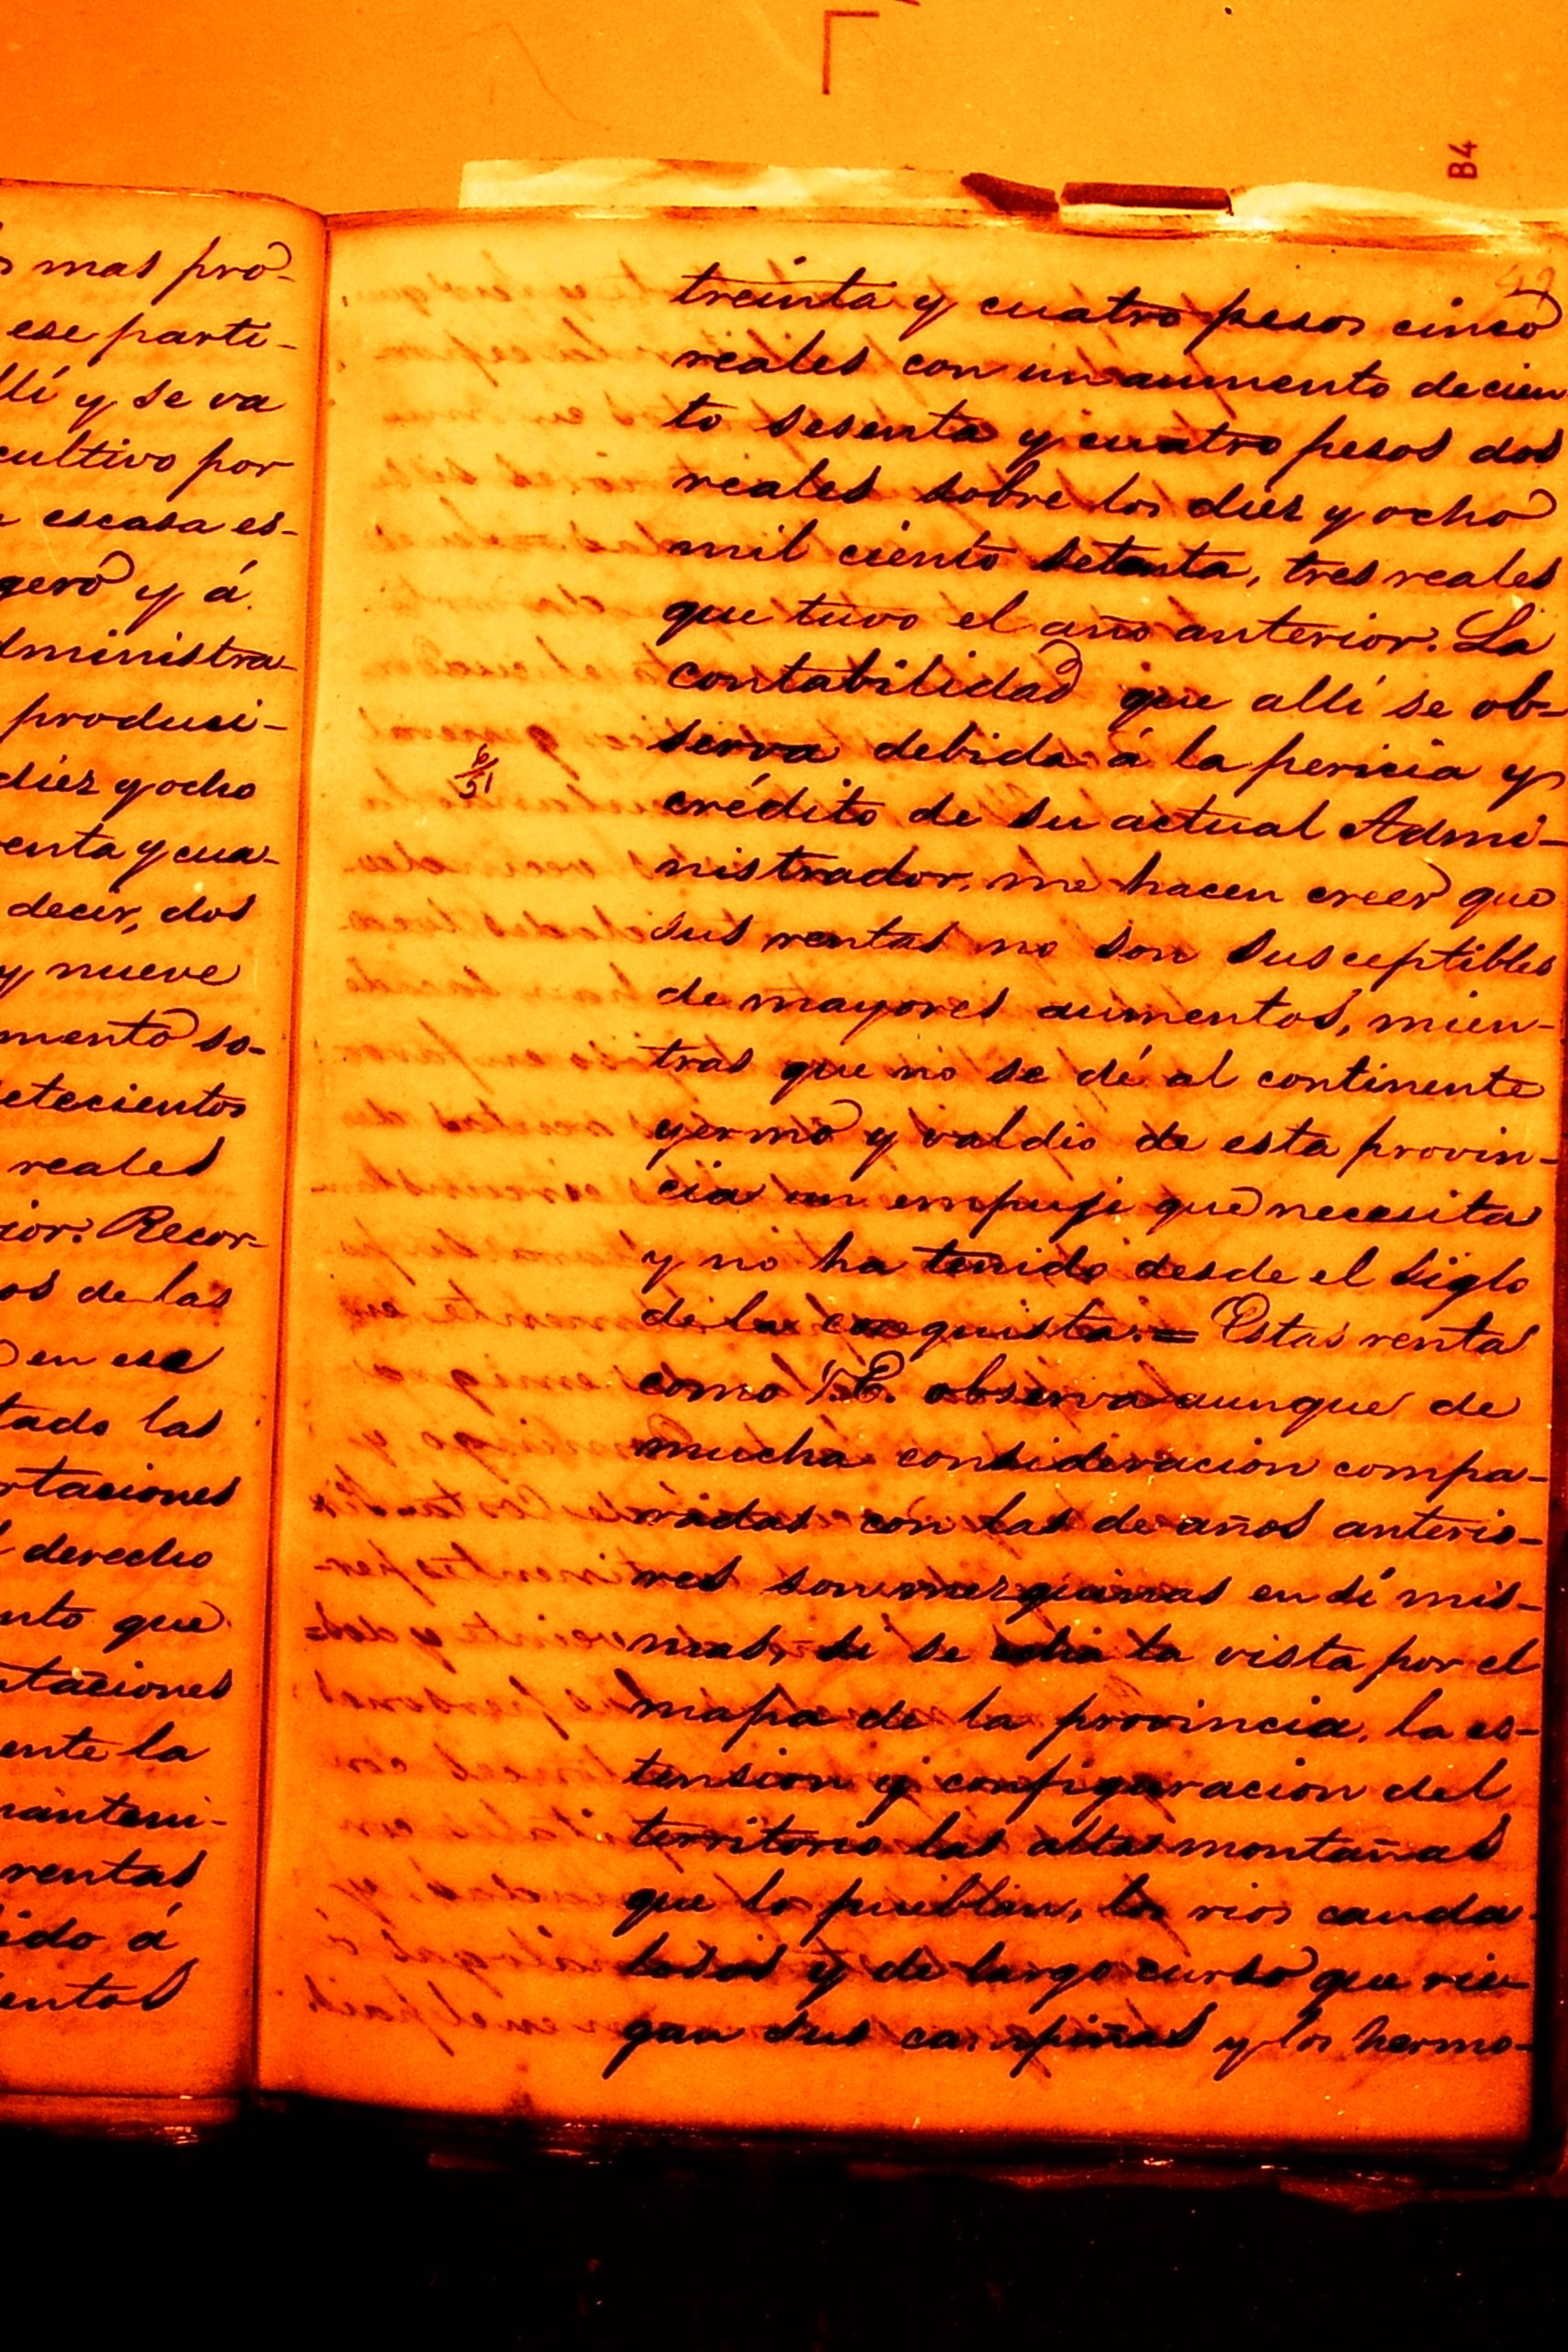 B4
mas pro-
ese parti-
llí y se va
cultivo por
escasa es-
gero y á
dministra-
produci-
diez y ocho
enta y cua-
decir, dos
y nueve
mento so-
etecientos
reales
ior. Recor-
os de las
en ese
tado las
rtaciones
derecho
nto que
ntaciones
ente la
manteni-
rentas
ido á
entos
42
treinta y cuatro pesos cinco
reales con un aumento de cien
to sesenta y cuatro pesos dos
reales sobre los diez y ocho
mil ciento setenta, tres reales
que tuvo el año anterior. La
contabilidad que allí se ob-
serva debida á la pericia y
crédito de su actual Admi-
nistrador, me hacen creer que
sus rentas no son susceptibles
de mayores aumentos, mien-
tras que no se dé al continente
yermo y valdio de esta provin-
cia un empuje que necesita
y no ha tenido desde el siglo
de la conquista. = Estas rentas
como V.E. observa aunque de
mucha consideracion compa-
radas con las de años anterio-
res son mezquinas en sí mis-
mas, si se echa la vista por el
mapa de la provincia, la es-
tension y configuracion del
territorio las altas montañas
que lo pueblan, los rios cauda-
losos y de largo curso que rie-
gan sus campiñas y los hermo-
6/51